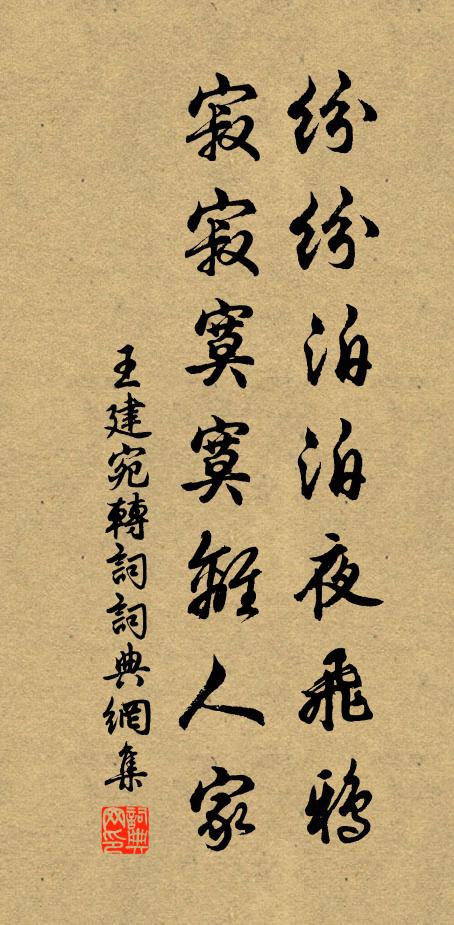 紛紛泊泊夜飛鴉
寂寂寞寞離人家
王建宛轉詞詞典網集
詞典網印